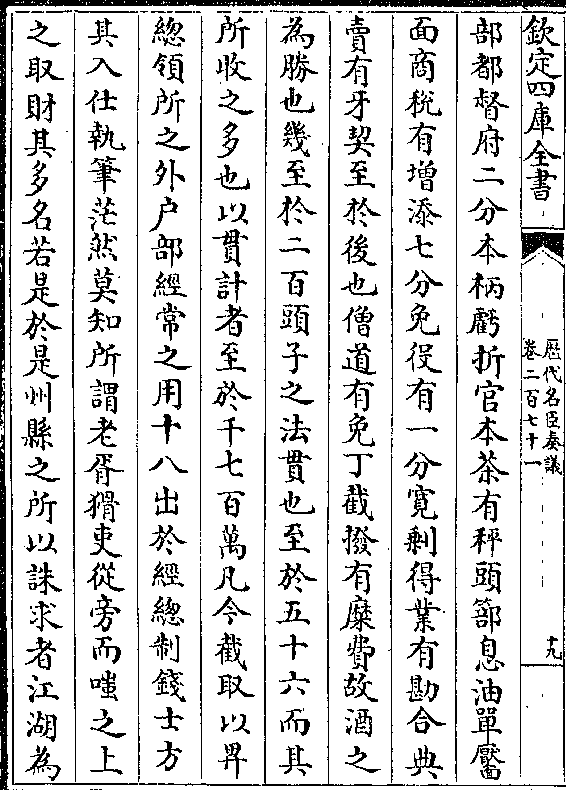 欽定四庫全書
歷代名臣奏議
卷二百七十一
十九
部都督府二分本柄虧折官本茶有秤頭篰息油單靨
面商稅有增添七分免役有一分寛剰得業有勘合典
賣有牙契至於後也僧道有免丁截撥有糜費故酒之
為勝也幾至於二百頭子之法貫也至於五十六而其
所收之多也以貫計者至於千七百萬凡今截取以畀
總領所之外户部經常之用十八出於經總制錢士方
其入仕執筆茫然莫知所謂老胥猾吏從旁而嗤之上
之取財其多名若是於是州縣之所以誅求者江湖為